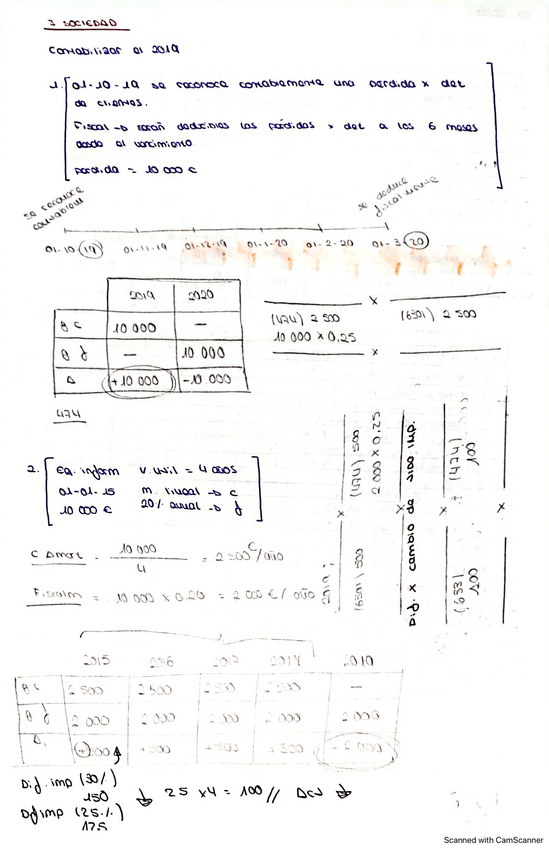 3 SOCIEDAD
Contabilizar el 2019
1. 01-10-19 se reconoce contablemente una pérdida x det
de clientes.
Fiscal → serán deducibles las pérdidas x det a los 6 meses
desde el vencimiento
pérdida = 10 000 €
se reconoce contablem
se deduce fiscalmente
01-10-19 01-11-19 01-12-19 01-1-20 01-2-20 01-3-20
2019 2020
G C 10 000 —
G f — 10 000
Δ +10 000 -10 000
474
x
(474) 2 500 (6301) 2 500
10 000 x 0,25
x
2. Eq. inform V. util = 4 años
01-01-15 m. lineal → C
10 000 € 20% anual → f
C Amort = 10 000 / 4 = 2 500 €/año
Fiscalm = 10 000 x 0.20 = 2 000 €/año
2019:
x
(6301) 500 (474) 500
2 000 x 0,25
x
Dif. x cambio de tipo imp.
(633) 100 (474) 100
x
2015 2016 2017 2018 2019
G C 2 500 2 500 2 500 2 500 —
G f 2 000 2 000 2 000 2 000 2 000
Δ +500 +500 +500 +500 -2 000
Dif. imp (30%)
150
Dif imp (25%)
125
↓ 25 x4 = 100 //
Scanned with CamScanner